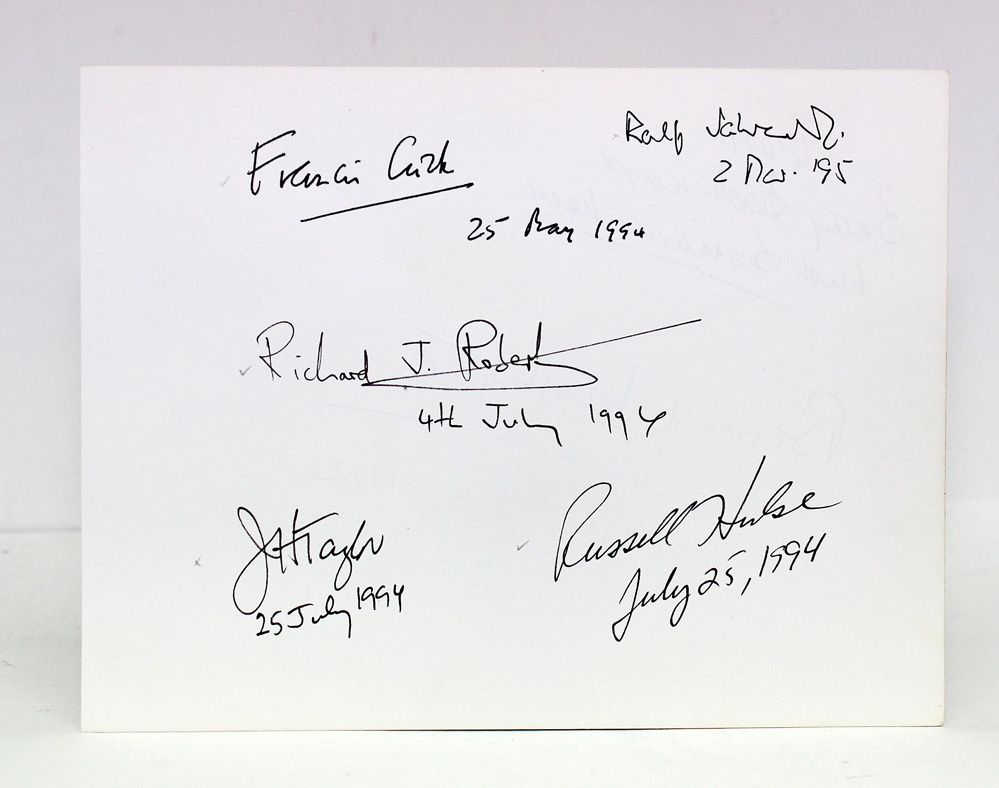 Francis Crick
25 May 1994
Ralf
2 Mar. '95
Richard J. Roberts
4th July 1994
JHTaylor
25 July 1994
Russell Hulse
July 25, 1994